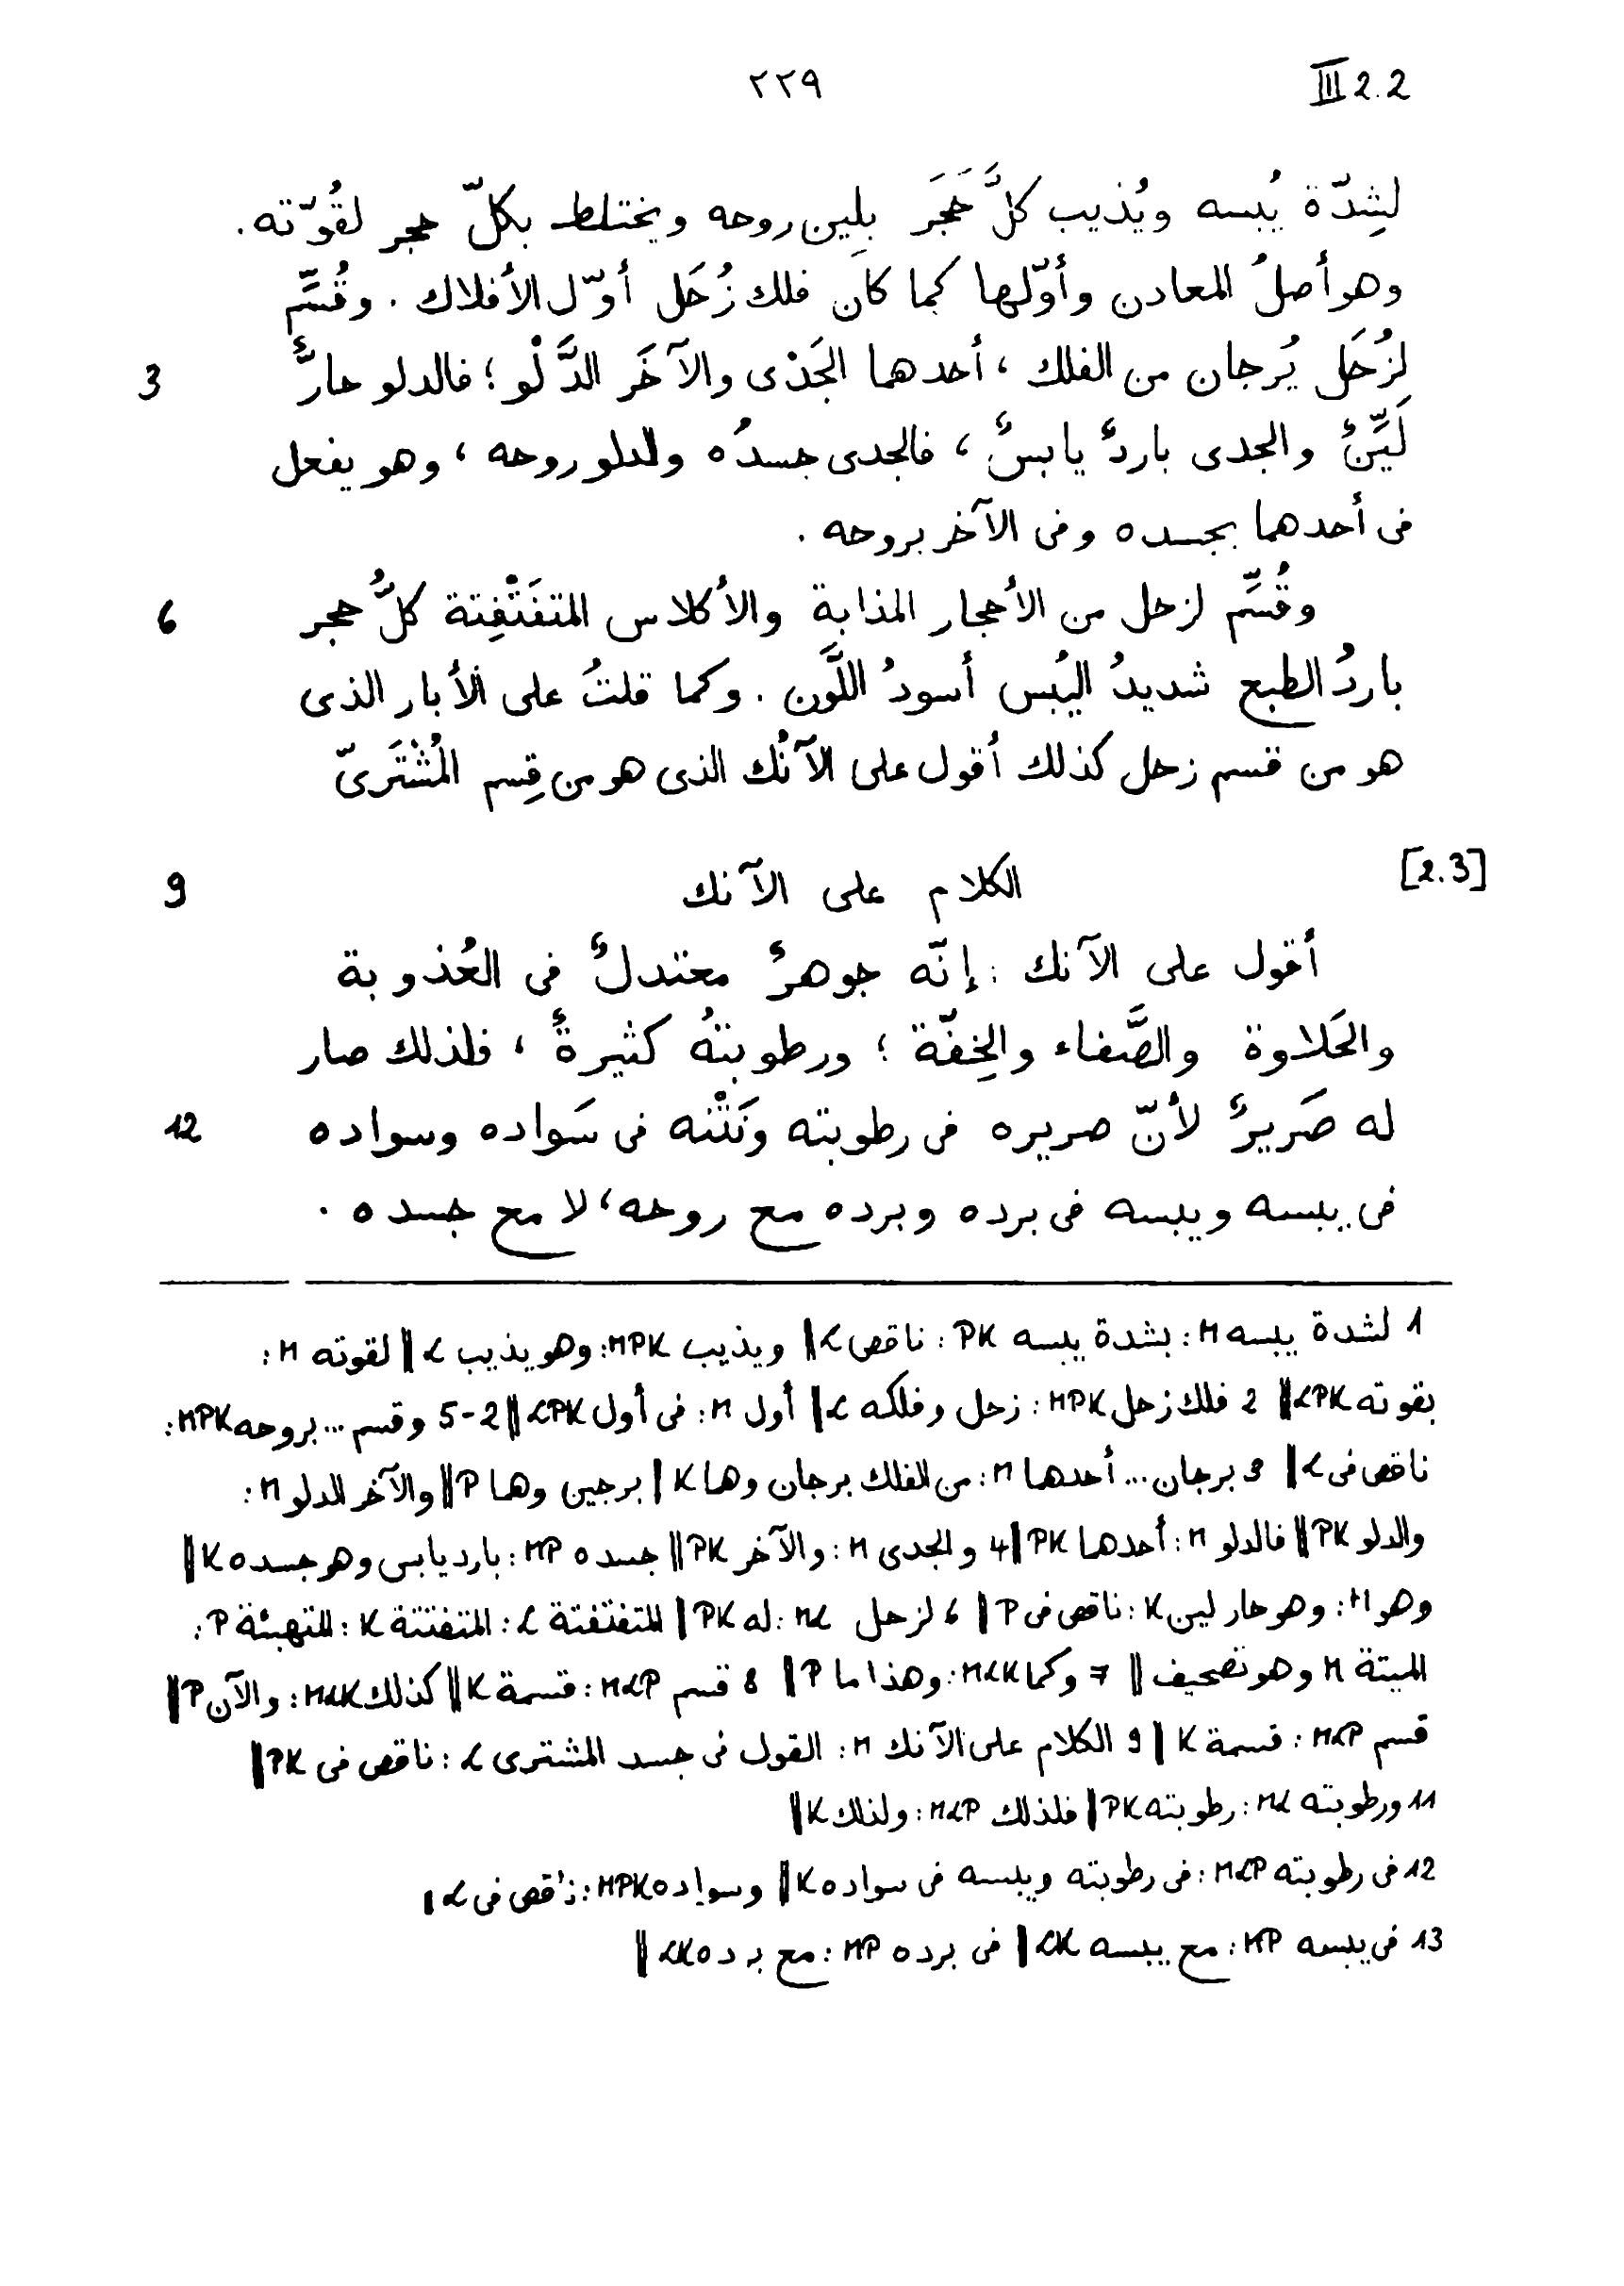 III 2.2 ٢٢٩
لِشِدّة يُبسه ويُذيب كلَّ حَجَرَ بلِين روحه ويختلط بكلّ حجر لقُوّته .
وهو أصلُ المعادن وأوّلها كما كان فلك زُحَل أوّل الأفلاك . وقُسِّم
لزُحَل بُرجان من الفلك ، أحدهما الجَدْى والآخَر الدَّلْو ؛ فالدلو حارٌّ 3
لَيِّنٌ والجدى باردٌ يابسٌ ، فالجدى جسدُه والدلو روحه ، وهو يفعل
فى أحدهما بجسده وفى الآخر بروحه .
وقُسِّم لزحل من الأحجار المذابة والأكلاس المتفَتْفِتة كلُّ حجر 6
باردُ الطبع شديدُ اليُبس أسودُ اللَّون . وكما قلتُ على الأبار الذى
هو من قسم زحل كذلك أقول على الآنُك الذى هو من قِسم المُشْتَرىّ
[2.3] الكلام على الآنك 9
أقول على الآنك : إنّه جوهرٌ معتدلٌ فى العُذوبة
والحَلاوة والصَّفاء والخِفّة ؛ ورطوبتهُ كثيرةٌ ، فلذلك صار
له صَريرٌ لأنّ صريره فى رطوبته ونَتْنه فى سَواده وسواده 12
فى يبسه ويبسه فى برده وبرده مع روحه ، لا مع جسده .
1 لشدة يبسه M : بشدة يبسه PK : ناقص L ‖ ويذيب MPK : وهو يذيب L ‖ لقوته M :
بقوته LPK ‖ 2 فلك زحل MPK : زحل وفلكه L ‖ أول M : فى أول LPK ‖ 2-5 وقسم ... بروحه MPK :
ناقص فى L ‖ 3 برجان ... أحدهما M : من الفلك برجان وهما K | برجين وهما P ‖ والآخر الدلو M :
والدلو PK ‖ فالدلو M : أحدهما PK ‖ 4 والجدى M : والآخر PK ‖ جسده MP : بارد يابس وهو جسده K ‖
وهو M : وهو حار لين K : ناقص فى P ‖ 6 لزحل ML : له PK ‖ المتفتفتة L : المتفتتة K : المتهيئة P :
الميتة M وهو تصحيف ‖ 7 وكما MLK : وهذا ما P ‖ 8 قسم MLP : قسمة K ‖ كذلك MLK : والآن P ‖
قسم MLP : قسمة K ‖ 9 الكلام على الآنك M : القول فى جسد المشترى L : ناقص فى PK ‖
11 ورطوبته ML : رطوبته PK ‖ فلذلك MLP : ولذلك K ‖
12 فى رطوبته MLP : فى رطوبته ويبسه فى سواده K ‖ وسواده MPK : ناقص فى L ‖
13 فى يبسه MP : مع يبسه LK ‖ فى برده MP : مع برده LK ‖